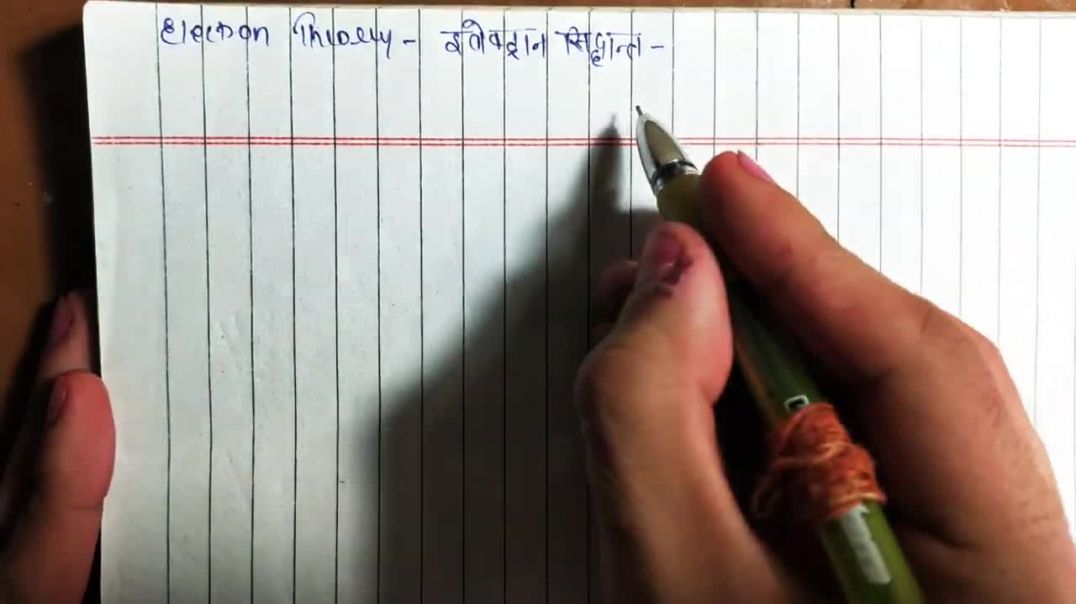 Electron Theory - इलेक्ट्रान सिद्धान्त -